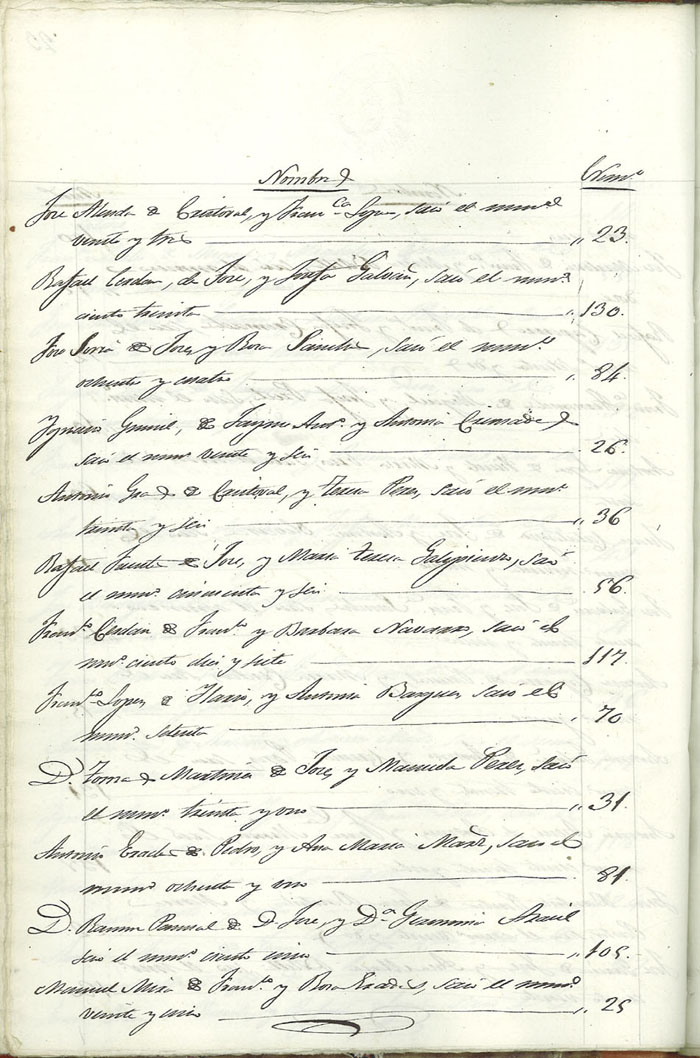 Nombres Num.º
Jose de Cristoval, y Fran.ca Lopez, sacó el num.º
veinte y tres 23.
Rafael Cerdan, de Jose, y Josefa Galvañ, sacó el num.º
ciento treinta 130.
Jose Soria de Jose, y Rosa Sanchis, sacó el num.º
ochenta y cuatro 84.
Ygnacio de Jayme Ant.º y Antonia
sacó el num.º veinte y seis 26.
Antonio de Cristoval, y Teresa Perez, sacó el num.º
treinta y seis 36
Rafael de Jose, y Maria Teresa Galipienzo, sacó
el num.º cincuenta y seis 56.
Fran.co Cerdan de Fran.co y Barbara Navarro, sacó el
num.º ciento diez y siete 117.
Fran.co Lopez de Ylario, y Antonia sacó el
num.º setenta 70
D.n Tomas Martinez de Jose, y Manuela Perez, sacó
el num.º treinta y uno 31.
Antonio de Pedro, y Ana Maria sacó el
num.º ochenta y uno 81.
D. Ramon Pascual de D. Jose, y D.ª Geronima
sacó el num.º ciento cinco 105.
Manuel Mira de Fran.co y Rosa sacó el num.º
veinte y cinco 25